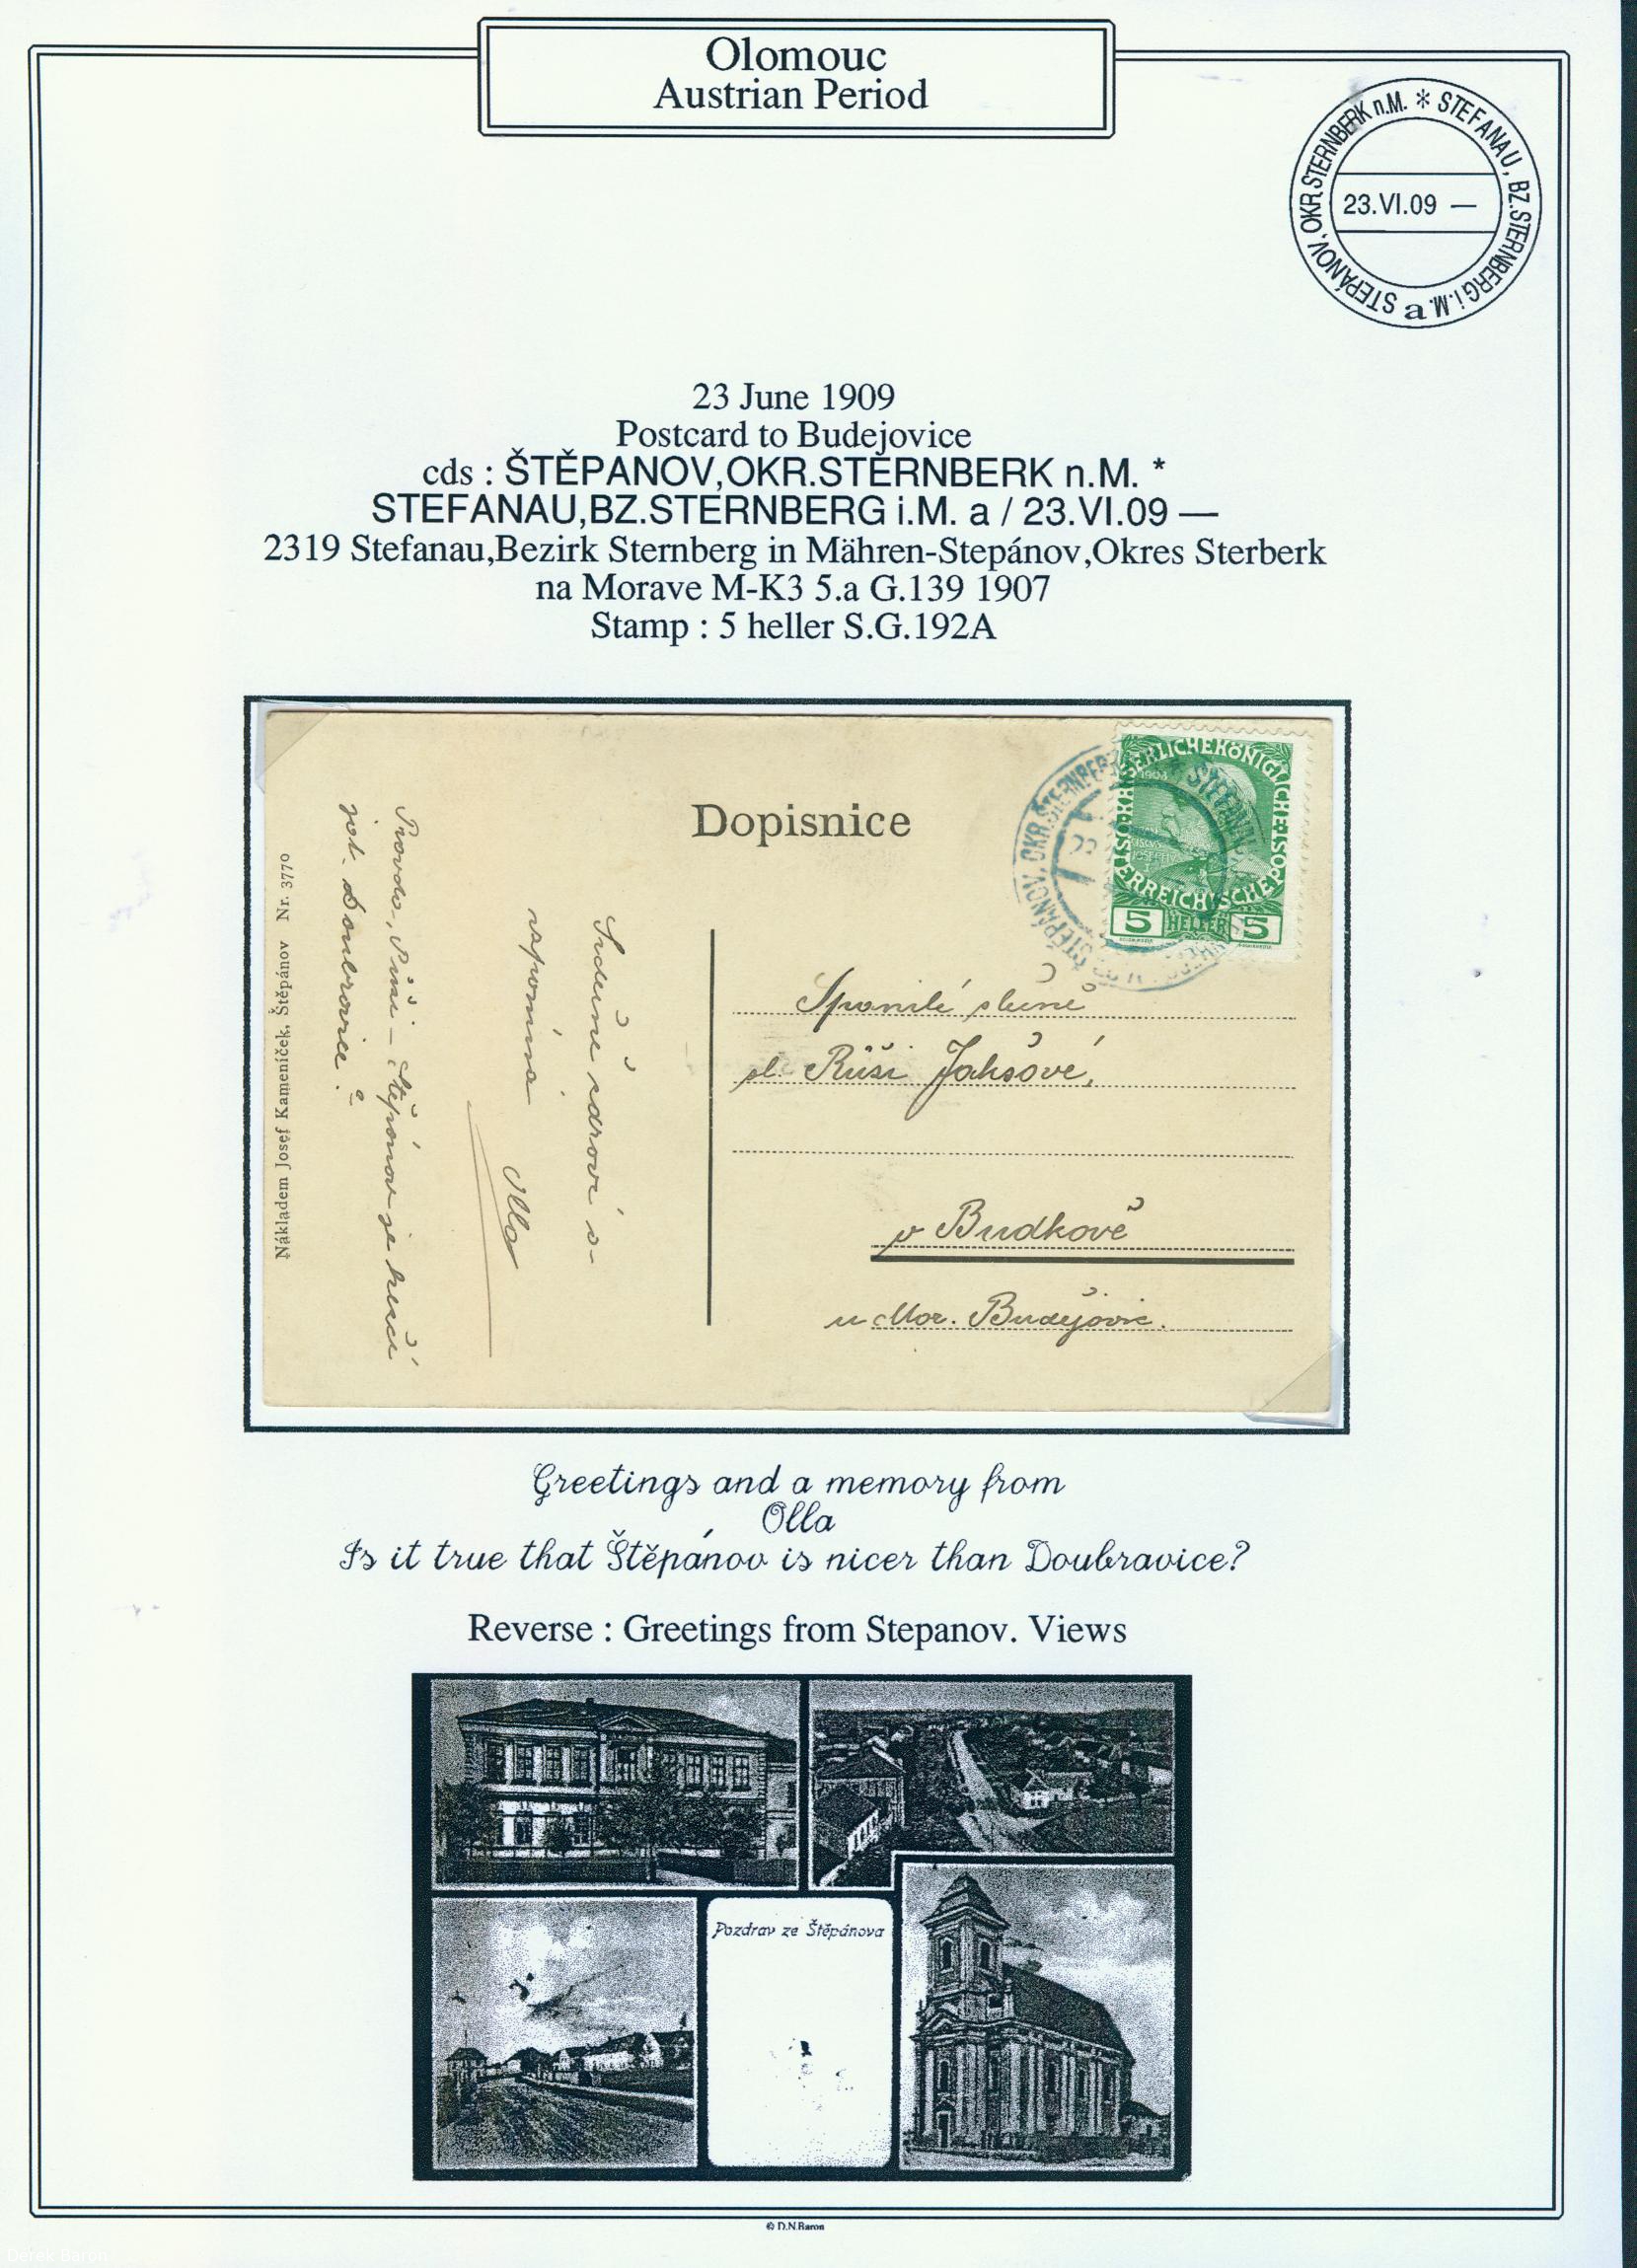 Olomouc
Austrian Period
STEPÁNOV, OKR.STERNBERK n.M. * STEFANAU, BZ.STERNBERG i.M. a
23.VI.09 —
23 June 1909
Postcard to Budejovice
cds : ŠTĚPANOV,OKR.STERNBERK n.M. *
STEFANAU,BZ.STERNBERG i.M. a / 23.VI.09 —
2319 Stefanau,Bezirk Sternberg in Mähren-Stepánov,Okres Sterberk
na Morave M-K3 5.a G.139 1907
Stamp : 5 heller S.G.192A
Dopisnice
5 HELLER 5
1908
Spanilé slečně
sl. Růži Jakšově,
v Budkově
u Mor. Budějovic.
Srdečně zdraví a
vzpomíná
Olla
Pravda, Růži – Štěpánov je hezčí
než Doubravice?
Nákladem Josef Kameníček, Štěpánov Nr. 3770
Greetings and a memory from
Olla
Is it true that Štěpánov is nicer than Doubravice?
Reverse : Greetings from Stepanov. Views
Pozdrav ze Štěpánova
© D.N.Baron
Derek Baron